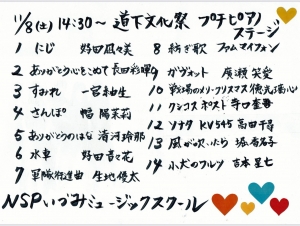 11/8(土) 14:30〜 道下文化祭 プチピアノステージ
1 にじ 野田凪々美
2 ありがとう心をこめて 長田彩暉
3 すみれ 一宮紬生
4 さんぽ 幅 陽茉莉
5 ありがとうのはな 清河玲那
6 水車 野田音々花
7 軍隊行進曲 生地優太
8 紡ぎ歌 ファムマイフォン
9 ガヴォット 廣瀬笑愛
10 戦場のメリークリスマス 徳元
11 ワンコスネスト 寺口
12 ソナタ KV545 高田千尋
13 風が吹いたら 堀 杏名子
14 小犬のワルツ 吉本星七
NSPいづみミュージックスクール